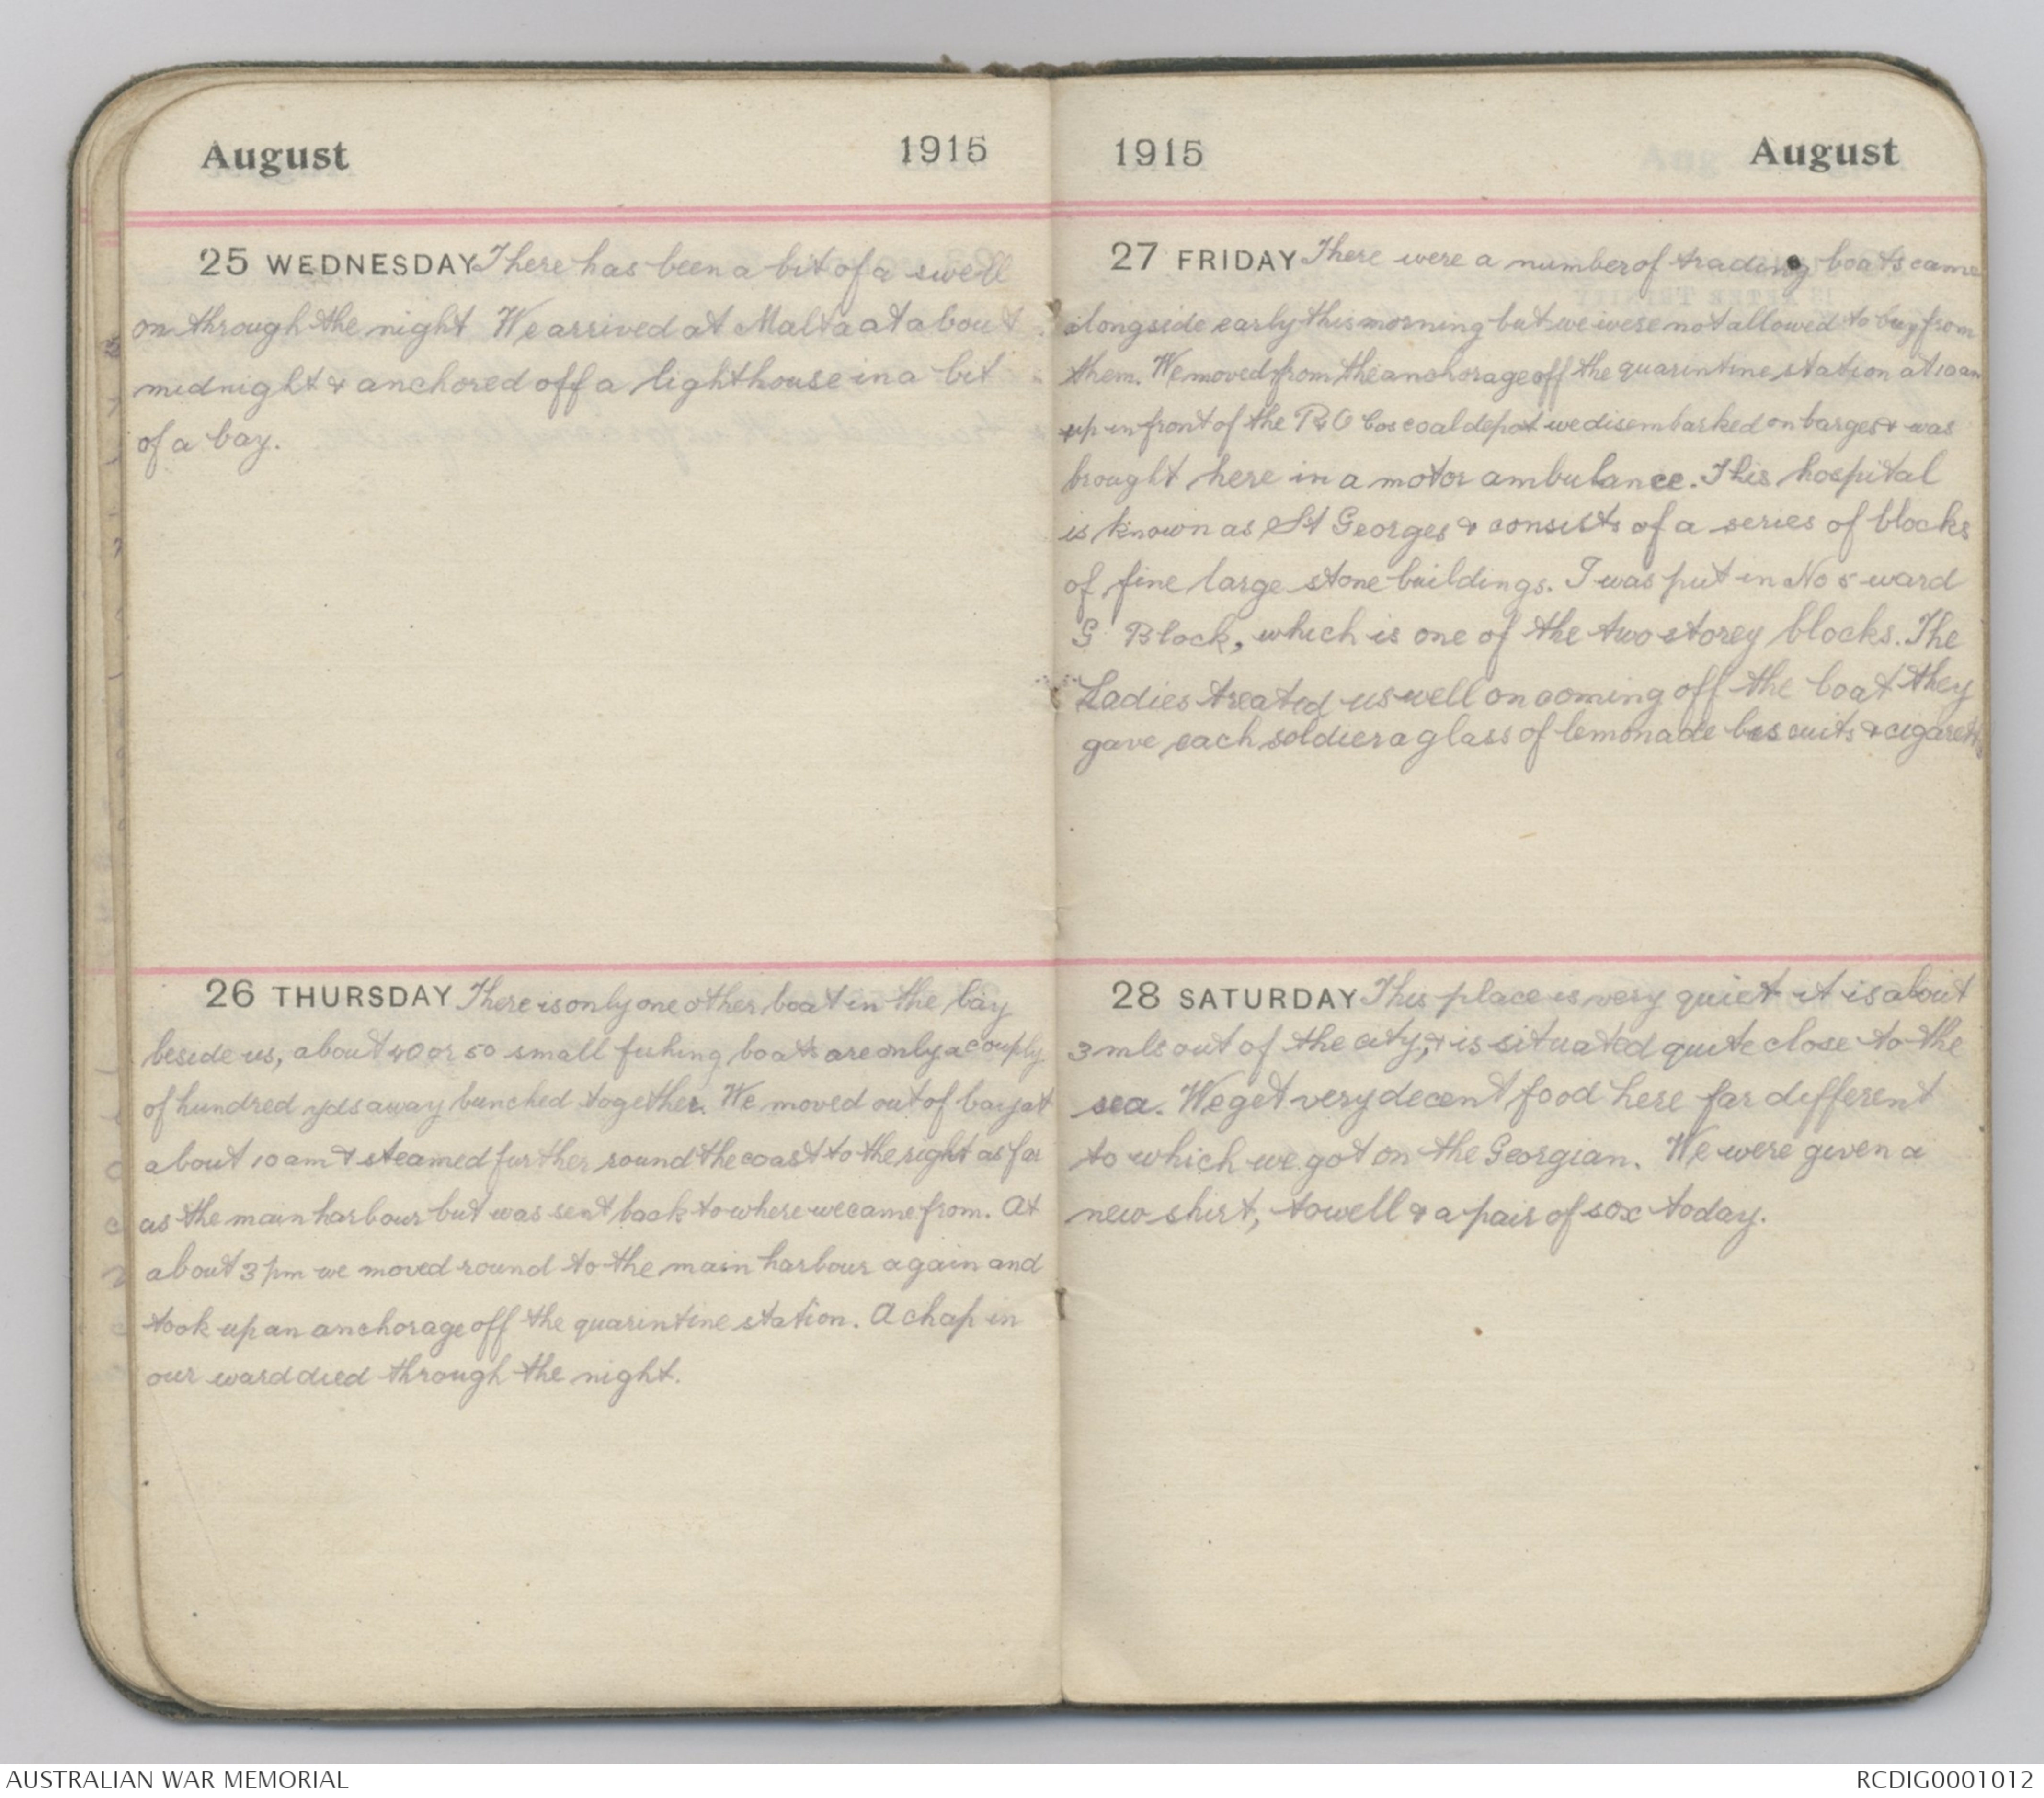 August 1915
25 WEDNESDAY There has been a bit of a swell
on through the night We arrived at Malta at about
midnight & anchored off a lighthouse in a bit
of a bay.
26 THURSDAY There is only one other boat in the bay
beside us, about 40 or 50 small fishing boats are only a couply
of hundred yds away bunched together. We moved out of bay at
about 10 am & steamed further round the coast to the right as far
as the main harbour but was sent back to where we came from. At
about 3 pm we moved round to the main harbour again and
took up an anchorage off the quarintine station. A chap in
our ward died through the night.
1915 August
27 FRIDAY There were a number of trading boats came
alongside early this morning but we were not allowed to buy from
them. We moved from the anchorage off the quarintine station at 10 am
up in front of the P&O Cos coal depot we disembarked on barges & was
brought here in a motor ambulance. This hospital
is known as St Georges & consists of a series of blocks
of fine large stone buildings. I was put in No 5 ward
G Block, which is one of the two storey blocks. The
Ladies treated us well on coming off the boat they
gave each soldier a glass of lemonade biscuits & cigaretts
28 SATURDAY This place is very quiet it is about
3 mls out of the city, & is situated quite close to the
sea. We get very decent food here far different
to which we got on the Georgian. We were given a
new shirt, towell & a pair of sox today.
AUSTRALIAN WAR MEMORIAL
RCDIG0001012